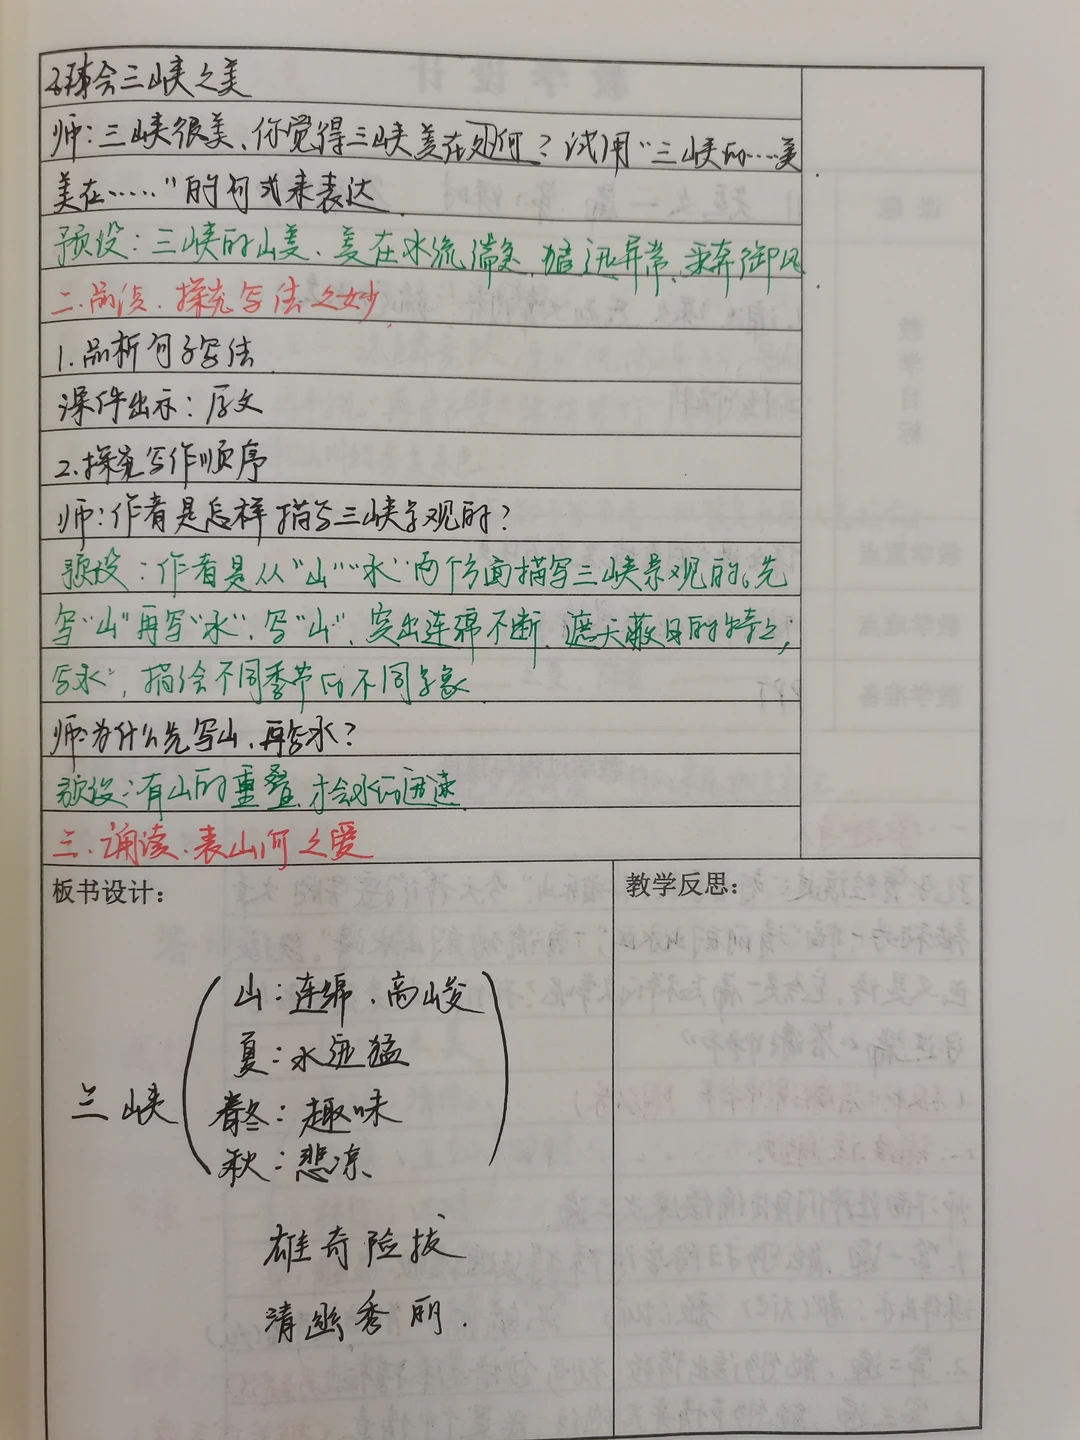 体会三峡之美
师：三峡很美、你觉得三峡美在何？试用“三峡的……美
美在……”的句式来表达.
预设：三峡的山美、美在水流湍急、迅异常、乘奔御风
二.品读、探究写法之妙.
1.品析句子写法.
课件出示：原文
2.探究写作顺序
师：作者是怎样描写三峡景观的？
预设：作者是从“山”“水”两个方面描写三峡景观的。先
写“山”再写“水”、写“山”、突出连绵不断、遮天蔽日的特点，
写水”，描绘不同季节的不同景象.
师：为什么先写山、再写水？
预设：有山的重叠、才会水的迅速.
三.诵读、表山河之爱
板书设计：
教学反思：
山：连绵、高峻
夏：水迅猛
三峡
春冬：趣味
秋：悲凉
雄奇险拔
清幽秀丽.